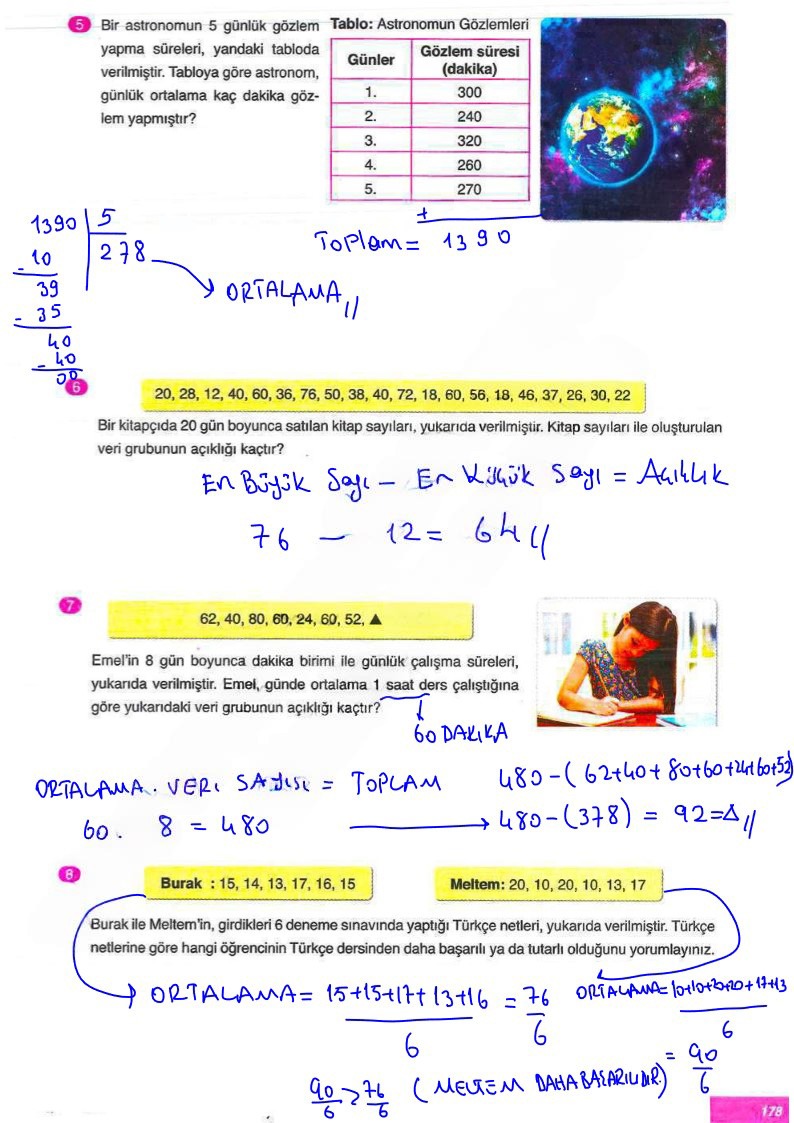 5 Bir astronomun 5 günlük gözlem
yapma süreleri, yandaki tabloda
verilmiştir. Tabloya göre astronom,
günlük ortalama kaç dakika göz-
lem yapmıştır?
Tablo: Astronomun Gözlemleri
Günler Gözlem süresi
(dakika)
1. 300
2. 240
3. 320
4. 260
5. 270
+
TOPlam = 1390
1390 5
- 10 278
39 ORTALAMA //
- 35
40
- 40
00
6
20, 28, 12, 40, 60, 36, 76, 50, 38, 40, 72, 18, 60, 56, 18, 46, 37, 26, 30, 22
Bir kitapçıda 20 gün boyunca satılan kitap sayıları, yukarıda verilmiştir. Kitap sayıları ile oluşturulan
veri grubunun açıklığı kaçtır?
En Büyük Sayı - En Küçük Sayı = Açıklık
76 - 12 = 64 //
7
62, 40, 80, 60, 24, 60, 52, ▲
Emel'in 8 gün boyunca dakika birimi ile günlük çalışma süreleri,
yukarıda verilmiştir. Emel, günde ortalama 1 saat ders çalıştığına
göre yukarıdaki veri grubunun açıklığı kaçtır?
60 DAKIKA
ORTALAMA . VERI SAYISI = TOPLAM 480-(62+40+80+60+24+60+52)
60 . 8 = 480 → 480-(378) = 92=Δ //
8
Burak : 15, 14, 13, 17, 16, 15
Meltem: 20, 10, 20, 10, 13, 17
Burak ile Meltem'in, girdikleri 6 deneme sınavında yaptığı Türkçe netleri, yukarıda verilmiştir. Türkçe
netlerine göre hangi öğrencinin Türkçe dersinden daha başarılı ya da tutarlı olduğunu yorumlayınız.
ORTALAMA = 15+15+17+13+16 = 76
6 6
ORTALAMA = 10+10+20+20+17+13
6
= 90
6
90 > 76 (MELTEM DAHA BAŞARILIDIR.)
6 6
178